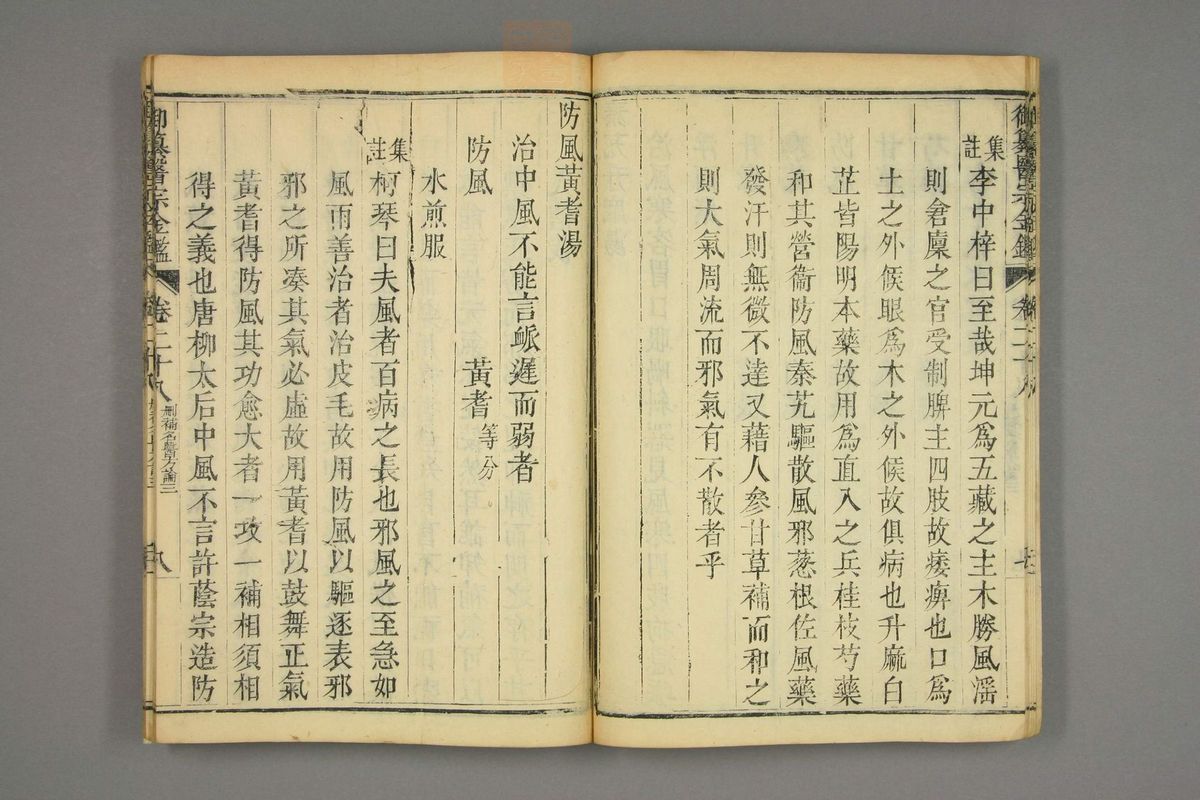 御纂醫宗金鑑 卷二十八
集註李中梓曰至哉坤元為五藏之主木勝風淫
則倉廩之官受制脾主四肢故痿痹也口為
土之外候眼為木之外候故俱病也升麻白
芷皆陽明本藥故用為直入之兵桂枝芍藥
和其營衞防風秦艽驅散風邪葱根佐風藥
發汗則無微不達又藉人參甘草補而和之
則大氣周流而邪氣有不散者乎
防風黃耆湯
治中風不能言脈遲而弱者
防風 黃耆等分
水煎服
集註柯琴曰夫風者百病之長也邪風之至急如
風雨善治者治皮毛故用防風以驅逐表邪
邪之所凑其氣必虛故用黃耆以鼓舞正氣
黃耆得防風其功愈大者一攻一補相須相
得之義也唐柳太后中風不言許蔭宗造防
御纂醫宗金鑑 卷二十八 刪補名醫方論三 八